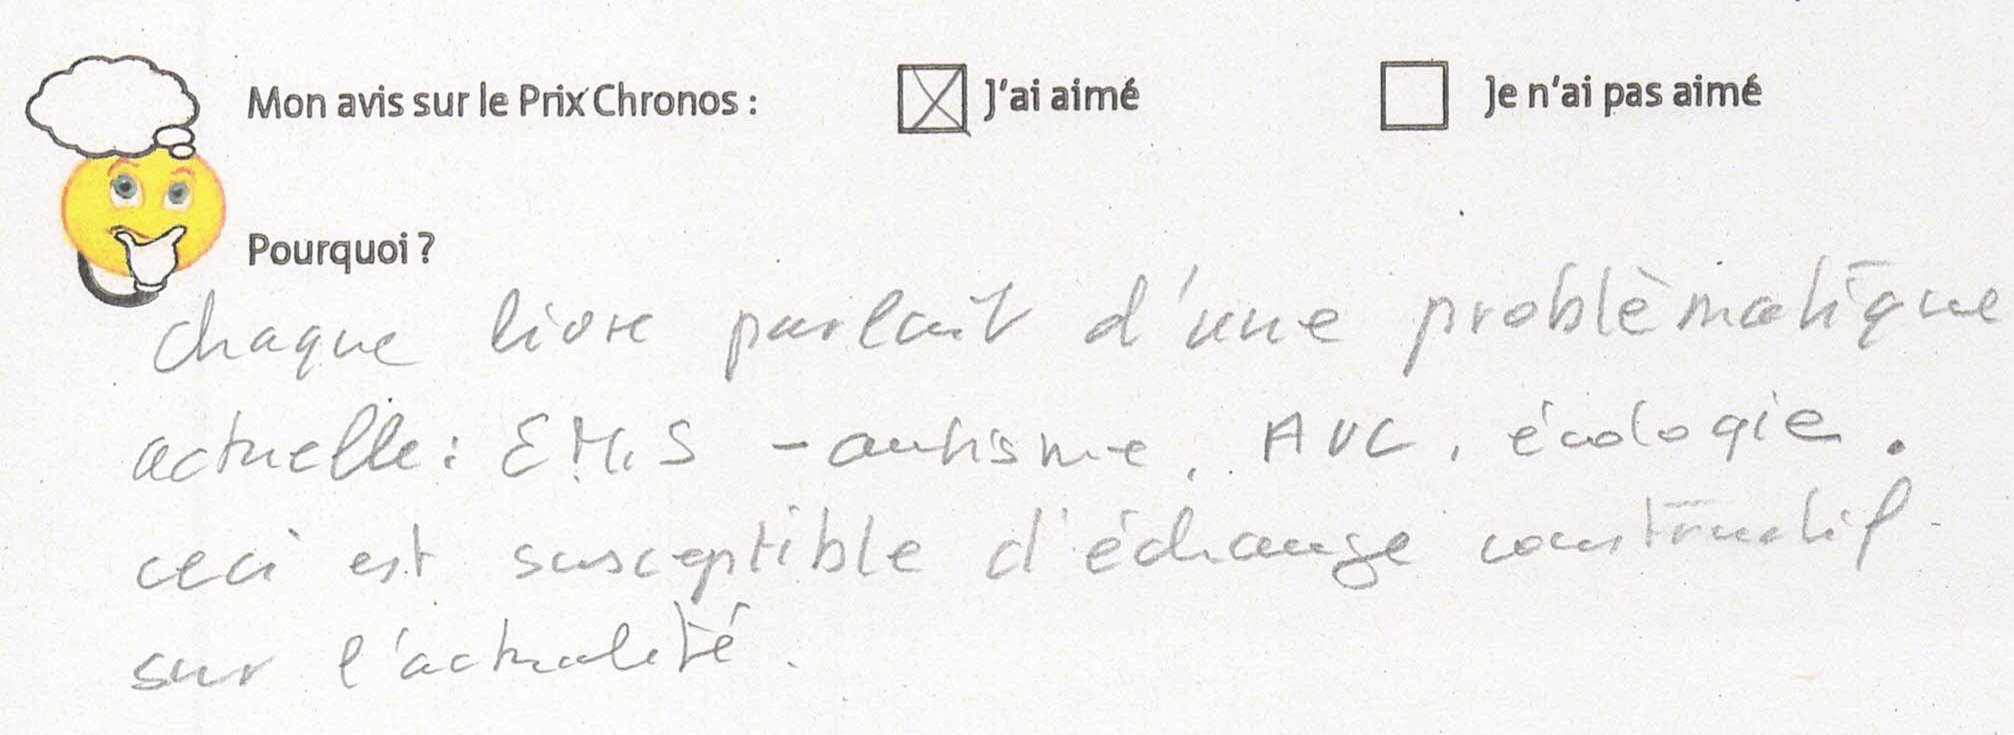 Mon avis sur le Prix Chronos : J'ai aimé Je n'ai pas aimé
Pourquoi ?
chaque livre parlait d'une problèmatique
actuelle : EMS - autisme, AVC, écologie.
ceci est susceptible d'échange constructif
sur l'actualité.